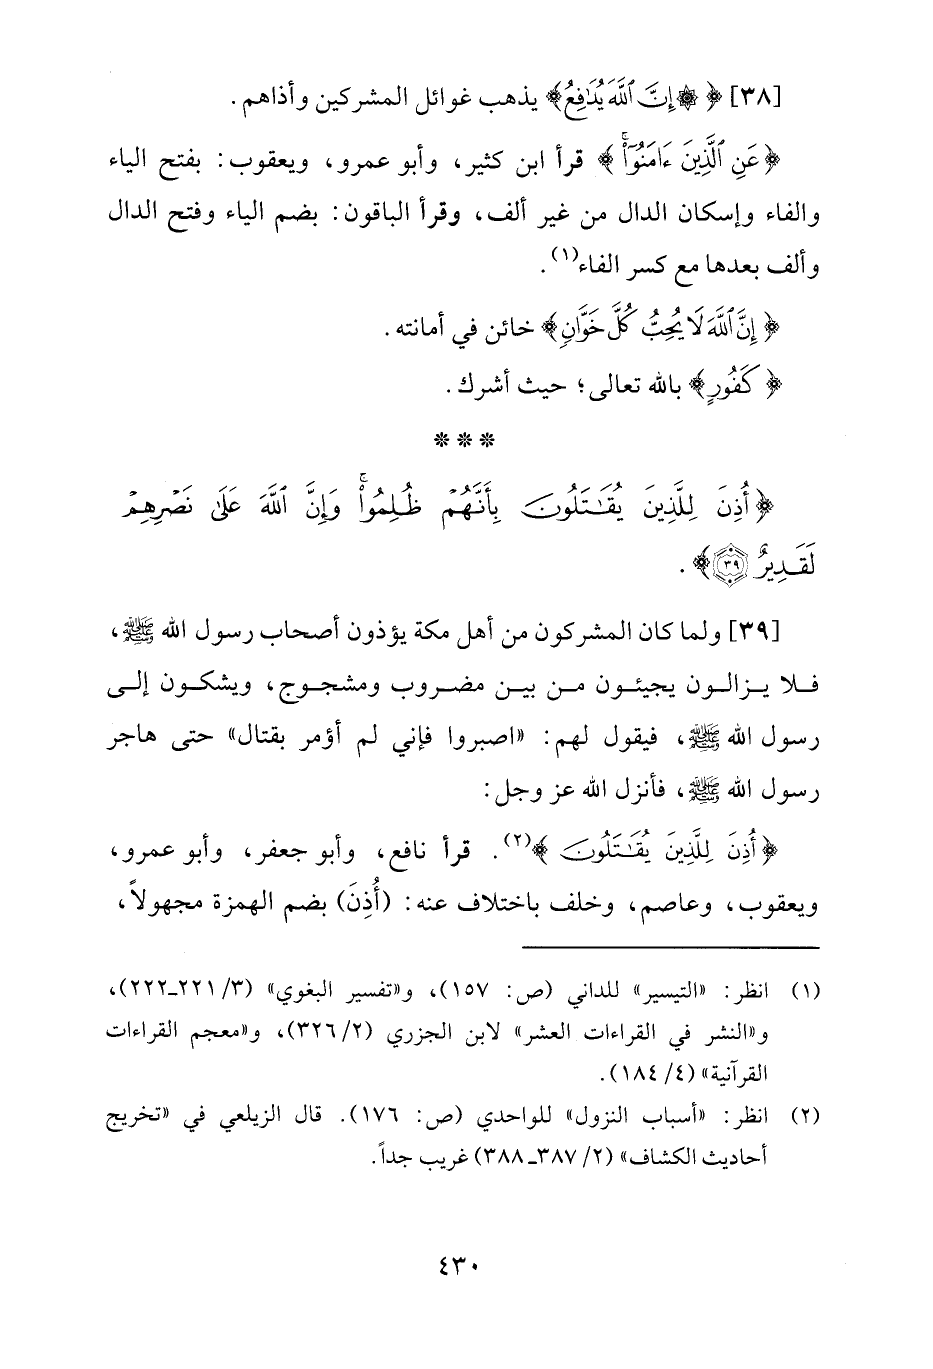 [٣٨] ﴿۞ إِنَّ ٱللَّهَ يُدَٰفِعُ﴾ يذهب غوائل المشركين وأذاهم.
﴿عَنِ ٱلَّذِينَ ءَامَنُوٓا۟ۗ﴾ قرأ ابن كثير، وأبو عمرو، ويعقوب: بفتح الياء
والفاء وإسكان الدال من غير ألف، وقرأ الباقون: بضم الياء وفتح الدال
وألف بعدها مع كسر الفاء(١).
﴿إِنَّ ٱللَّهَ لَا يُحِبُّ كُلَّ خَوَّانٍ﴾ خائن في أمانته.
﴿كَفُورٍ﴾ بالله تعالى؛ حيث أشرك.
* * *
﴿أُذِنَ لِلَّذِينَ يُقَٰتَلُونَ بِأَنَّهُمْ ظُلِمُوا۟ۚ وَإِنَّ ٱللَّهَ عَلَىٰ نَصْرِهِمْ
لَقَدِيرٌ ٣٩﴾.
[٣٩] ولما كان المشركون من أهل مكة يؤذون أصحاب رسول الله ﷺ،
فلا يزالون يجيئون من بين مضروب ومشجوج، ويشكون إلى
رسول الله ﷺ، فيقول لهم: «اصبروا فإني لم أؤمر بقتال» حتى هاجر
رسول الله ﷺ، فأنزل الله عز وجل:
﴿أُذِنَ لِلَّذِينَ يُقَٰتَلُونَ﴾(٢). قرأ نافع، وأبو جعفر، وأبو عمرو،
ويعقوب، وعاصم، وخلف باختلاف عنه: (أُذِنَ) بضم الهمزة مجهولاً،
(١) انظر: «التيسير» للداني (ص: ١٥٧)، و«تفسير البغوي» (٣/ ٢٢١-٢٢٢)،
و«النشر في القراءات العشر» لابن الجزري (٢/ ٣٢٦)، و«معجم القراءات
القرآنية» (٤/ ١٨٤).
(٢) انظر: «أسباب النزول» للواحدي (ص: ١٧٦). قال الزيلعي في «تخريج
أحاديث الكشاف» (٢/ ٣٨٧-٣٨٨) غريب جداً.
٤٣٠